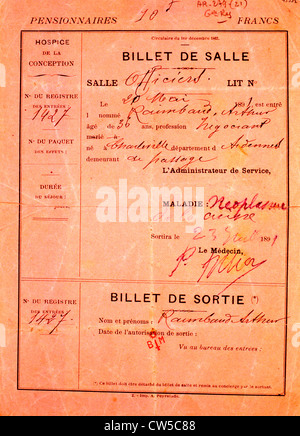 AR-279 (21)
PENSIONNAIRES 10 f FRANCS
Circulaire du 1er décembre 1862.
HOSPICE
DE LA
CONCEPTION
N° DU REGISTRE
DES ENTRÉES
1427
N° DU PAQUET
DES EFFETS :
DURÉE
DU SÉJOUR :
BILLET DE SALLE
SALLE Officiers LIT N°
Le 20 Mai 1891 est entré
l nommé Raimbaud, Arthur
âgé de 36 ans, profession Négociant
marié à
né à Charleville département d Ardennes
demeurant de passage
L'Administrateur de Service,
MALADIE : Néoplasme
de la cuisse
Sortira le 23 1891
Le Médecin,
N° DU REGISTRE
DES ENTRÉES
1427
BILLET DE SORTIE (*)
Nom et prénoms : Raimbaud Arthur
Date de l'autorisation de sortie :
Vu au bureau des entrées :
alamy
CW5C88
www.alamy.com